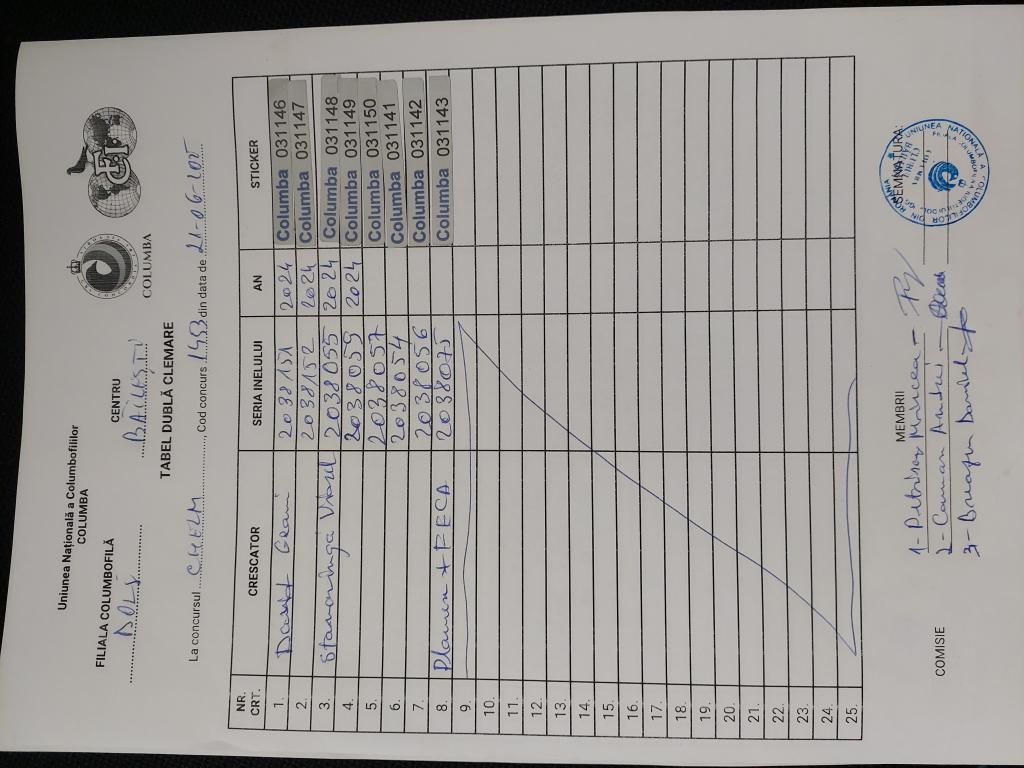 Uniunea Națională a Columbofililor
COLUMBA
FILIALA COLUMBOFILĂ
CENTRU
DOLJ
BĂILEȘTI
COLUMBA
TABEL DUBLĂ CLEMARE
La concursul CHELM, Cod concurs din data de 21-06-
NR. CRT. CRESCATOR SERIA INELULUI AN STICKER
1. 2038151 2024 Columba 031146
2. 2038152 2024 Columba 031147
3. 2038055 2024 Columba 031148
4. 2038059 2024 Columba 031149
5. 2038057 Columba 031150
6. 2038054 Columba 031141
7. 2038056 Columba 031142
8. + FECA 2038075 Columba 031143
9.
10.
11.
12.
13.
14.
15.
16.
17.
18.
19.
20.
21.
22.
23.
24.
25.
COMISIE
MEMBRII
SEMNATURA:
1- Mircea -
2-
3-